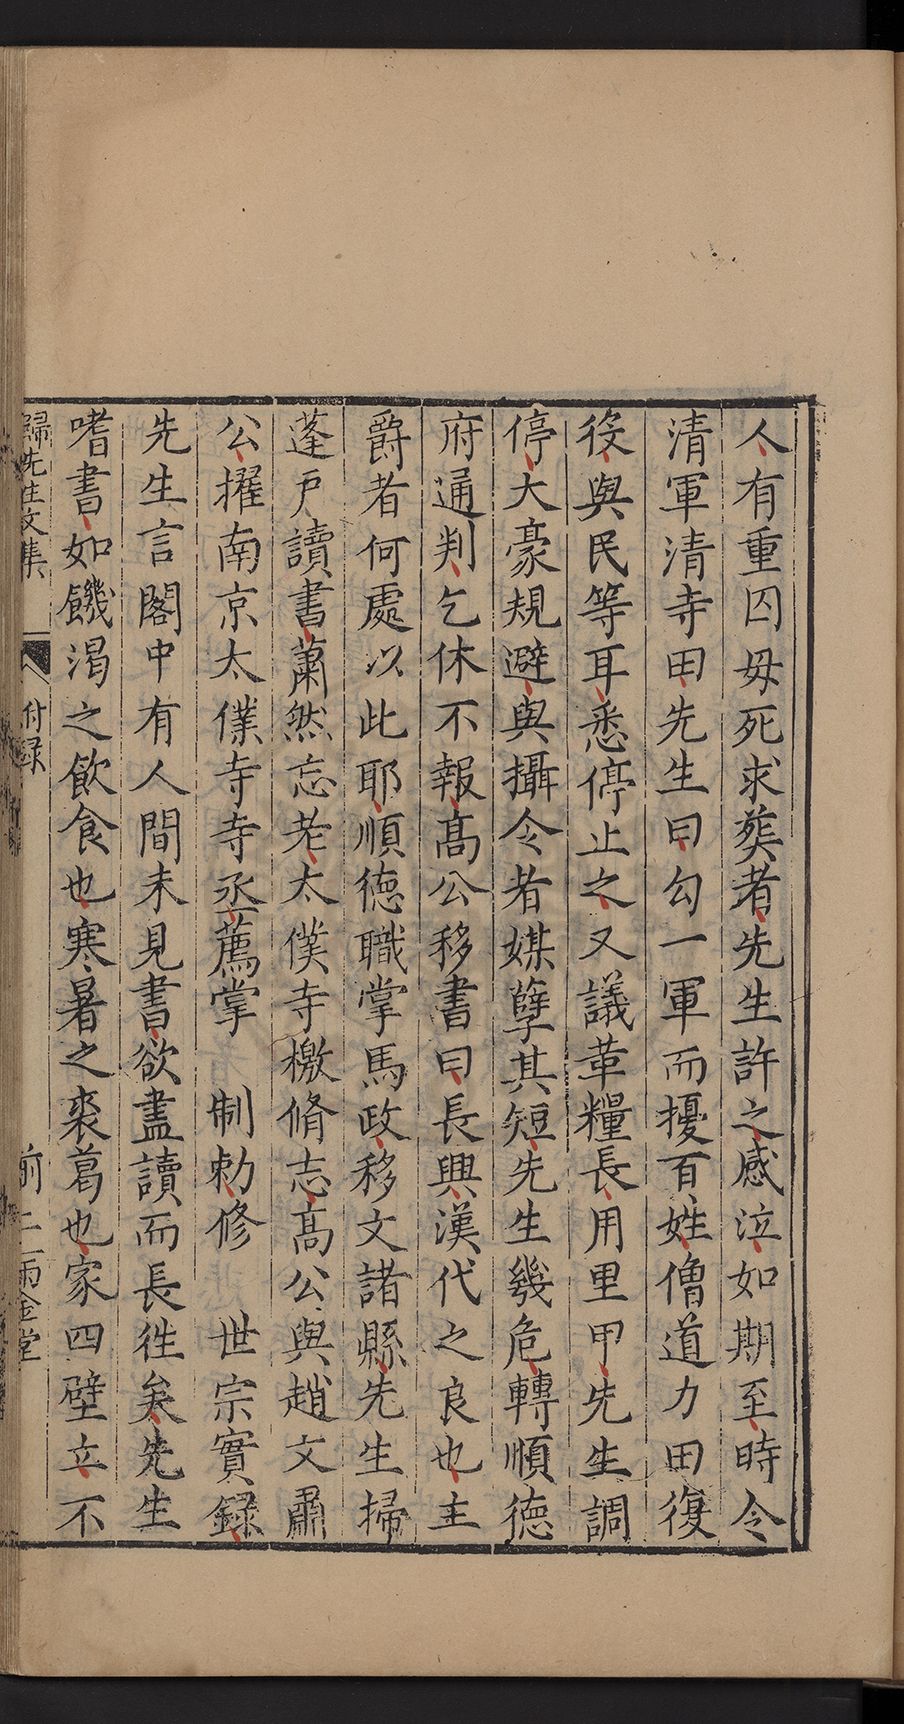 人有重囚母死求葬者先生許之感泣如期至時令
清軍清寺田先生曰勾一軍而擾百姓僧道力田復
役與民等耳悉停止之又議革糧長用里甲先生調
停大豪規避與攝令者媒孽其短先生幾危轉順德
府通判乞休不報高公移書曰長興漢代之良也主
爵者何處以此耶順德職掌馬政移文諸縣先生掃
蓬戶讀書蕭然忘老太僕寺檄脩志高公與趙文肅
公擢南京太僕寺寺丞薦掌 制勅修 世宗實録
先生言閣中有人間未見書欲盡讀而長徃矣先生
嗜書如饑渴之飲食也寒暑之裘葛也家四壁立不
歸先生文集 附録 前二 雨金堂